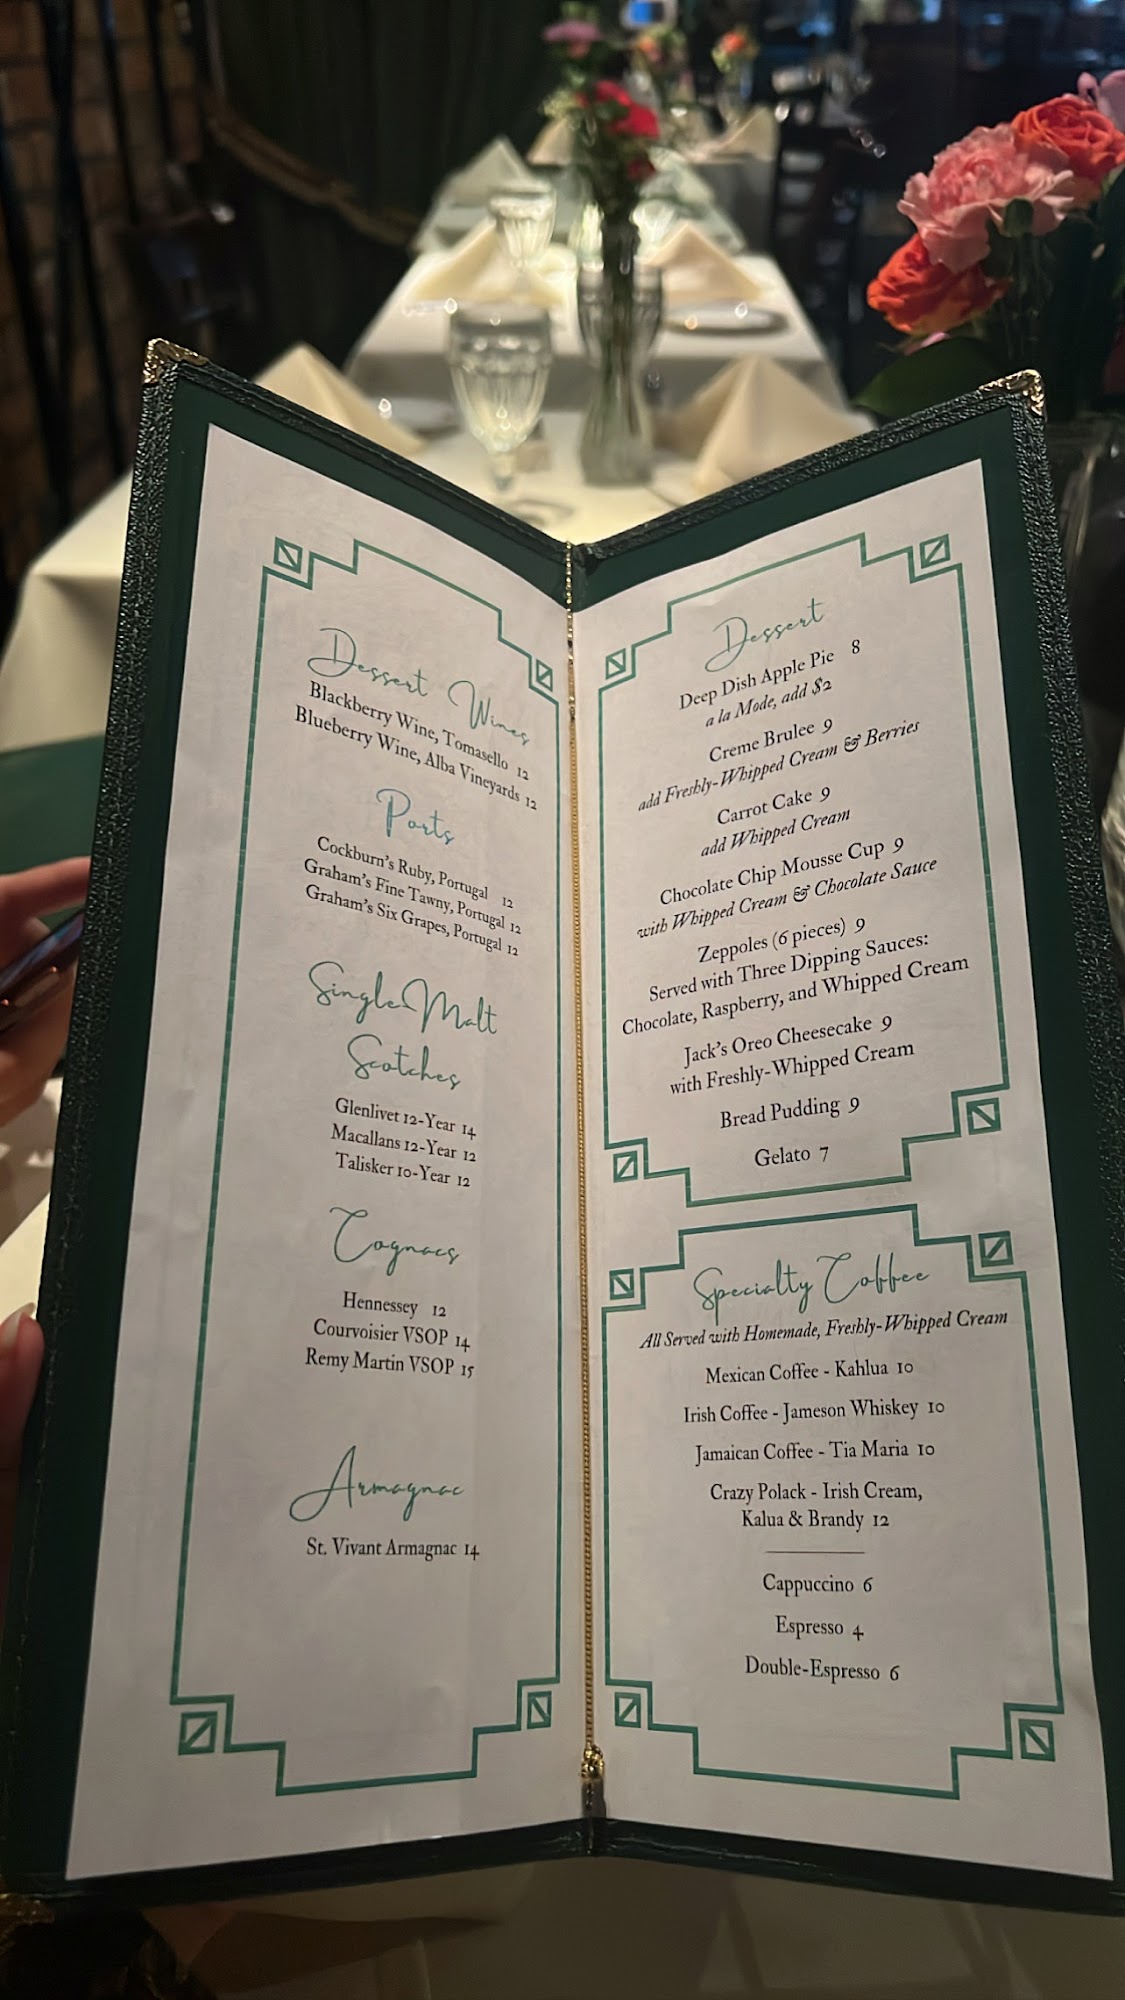 Dessert Wines
Blackberry Wine, Tomasello 12
Blueberry Wine, Alba Vineyards 12
Ports
Cockburn's Ruby, Portugal 12
Graham's Fine Tawny, Portugal 12
Graham's Six Grapes, Portugal 12
Single Malt
Scotches
Glenlivet 12-Year 14
Macallans 12-Year 12
Talisker 10-Year 12
Cognacs
Hennessey 12
Courvoisier VSOP 14
Remy Martin VSOP 15
Armagnac
St. Vivant Armagnac 14
Dessert
Deep Dish Apple Pie 8
a la Mode, add $2
Creme Brulee 9
add Freshly-Whipped Cream & Berries
Carrot Cake 9
add Whipped Cream
Chocolate Chip Mousse Cup 9
with Whipped Cream & Chocolate Sauce
Zeppoles (6 pieces) 9
Served with Three Dipping Sauces:
Chocolate, Raspberry, and Whipped Cream
Jack's Oreo Cheesecake 9
with Freshly-Whipped Cream
Bread Pudding 9
Gelato 7
Specialty Coffee
All Served with Homemade, Freshly-Whipped Cream
Mexican Coffee - Kahlua 10
Irish Coffee - Jameson Whiskey 10
Jamaican Coffee - Tia Maria 10
Crazy Polack - Irish Cream,
Kalua & Brandy 12
Cappuccino 6
Espresso 4
Double-Espresso 6